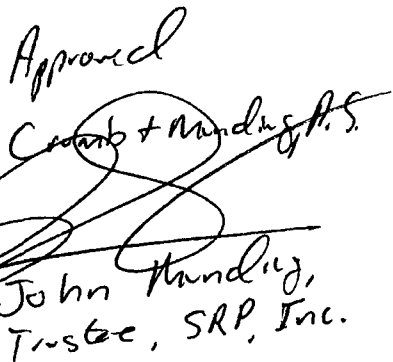 Approved
Crumb + Munding, P.S.
John Munding,
Trustee, SRP, Inc.